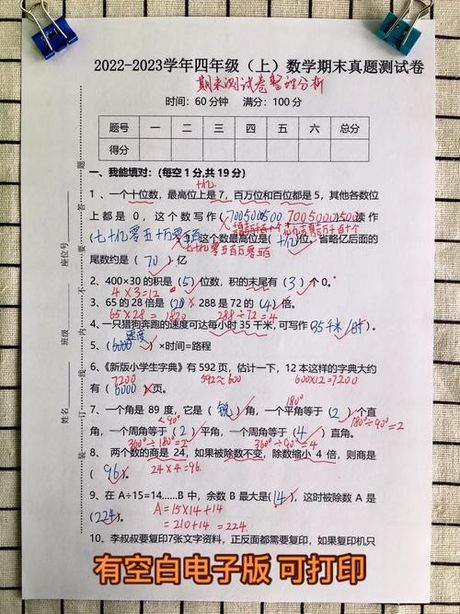 2022-2023学年四年级（上）数学期末真题测试卷
期末测试卷整理分析
时间：60分钟 满分：100分
题号 一 二 三 四 五 六 总分
得分
一、我能填对：(每空1分,共19分)
十亿
1、一个十位数，最高位上是7，百万位和百位都是5，其他各数位
上都是 0 ，这个数写作(700500500 7005000500读作
(七十亿零五十万零五百 这个数最高位是(十亿)位，省略亿后面的
七十亿零五百万零五百
尾数约是（70）亿
2、400×30的积是（5）位数，积的末尾有（3）个0。
4×3=12
3、65的28倍是(28 ×288是72的（4）倍。
65×28=1820 288÷72=4
4、一只猎狗奔跑的速度可达每小时35千米,可写作(35千米/时)。
速度
5、(6000)×时间=路程
6、《新版小学生字典》有592页，估计一下，12本这样的字典大约
7200 592≈600 600×12=7200
有（6000）页。
7、一个角是89度，它是（锐）角，一个平角等于（2）个直
<90° 180° 180°÷90°=2
角，一个周角等于（2）平角，一个周角等于（4）直角。
360°÷180°=2 360°÷90°=4
8、 两个数的商是 24，如果被除数不变，除数缩小 4 倍，则商是
（96）。 24×4=96.
9、在 A÷15=14……B 中，余数 B 最大是(14)，这时被除数 A 是
(224). A=15×14+14
=210+14=224.
10、李叔叔要复印7张文字资料，正反面都需要复印，如果复印机只
有空白电子版 可打印
座位号
班级
姓名
装
订
线
内
不
要
答
题